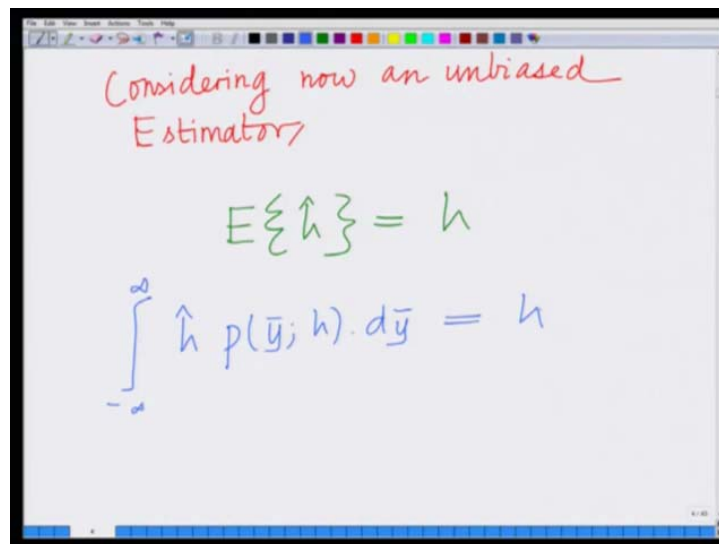 File Edit View Insert Actions Tools Help
Considering now an unbiased
Estimator,
E{ĥ} = h
∫_{-∞}^{∞} ĥ p(ȳ; h). dȳ = h